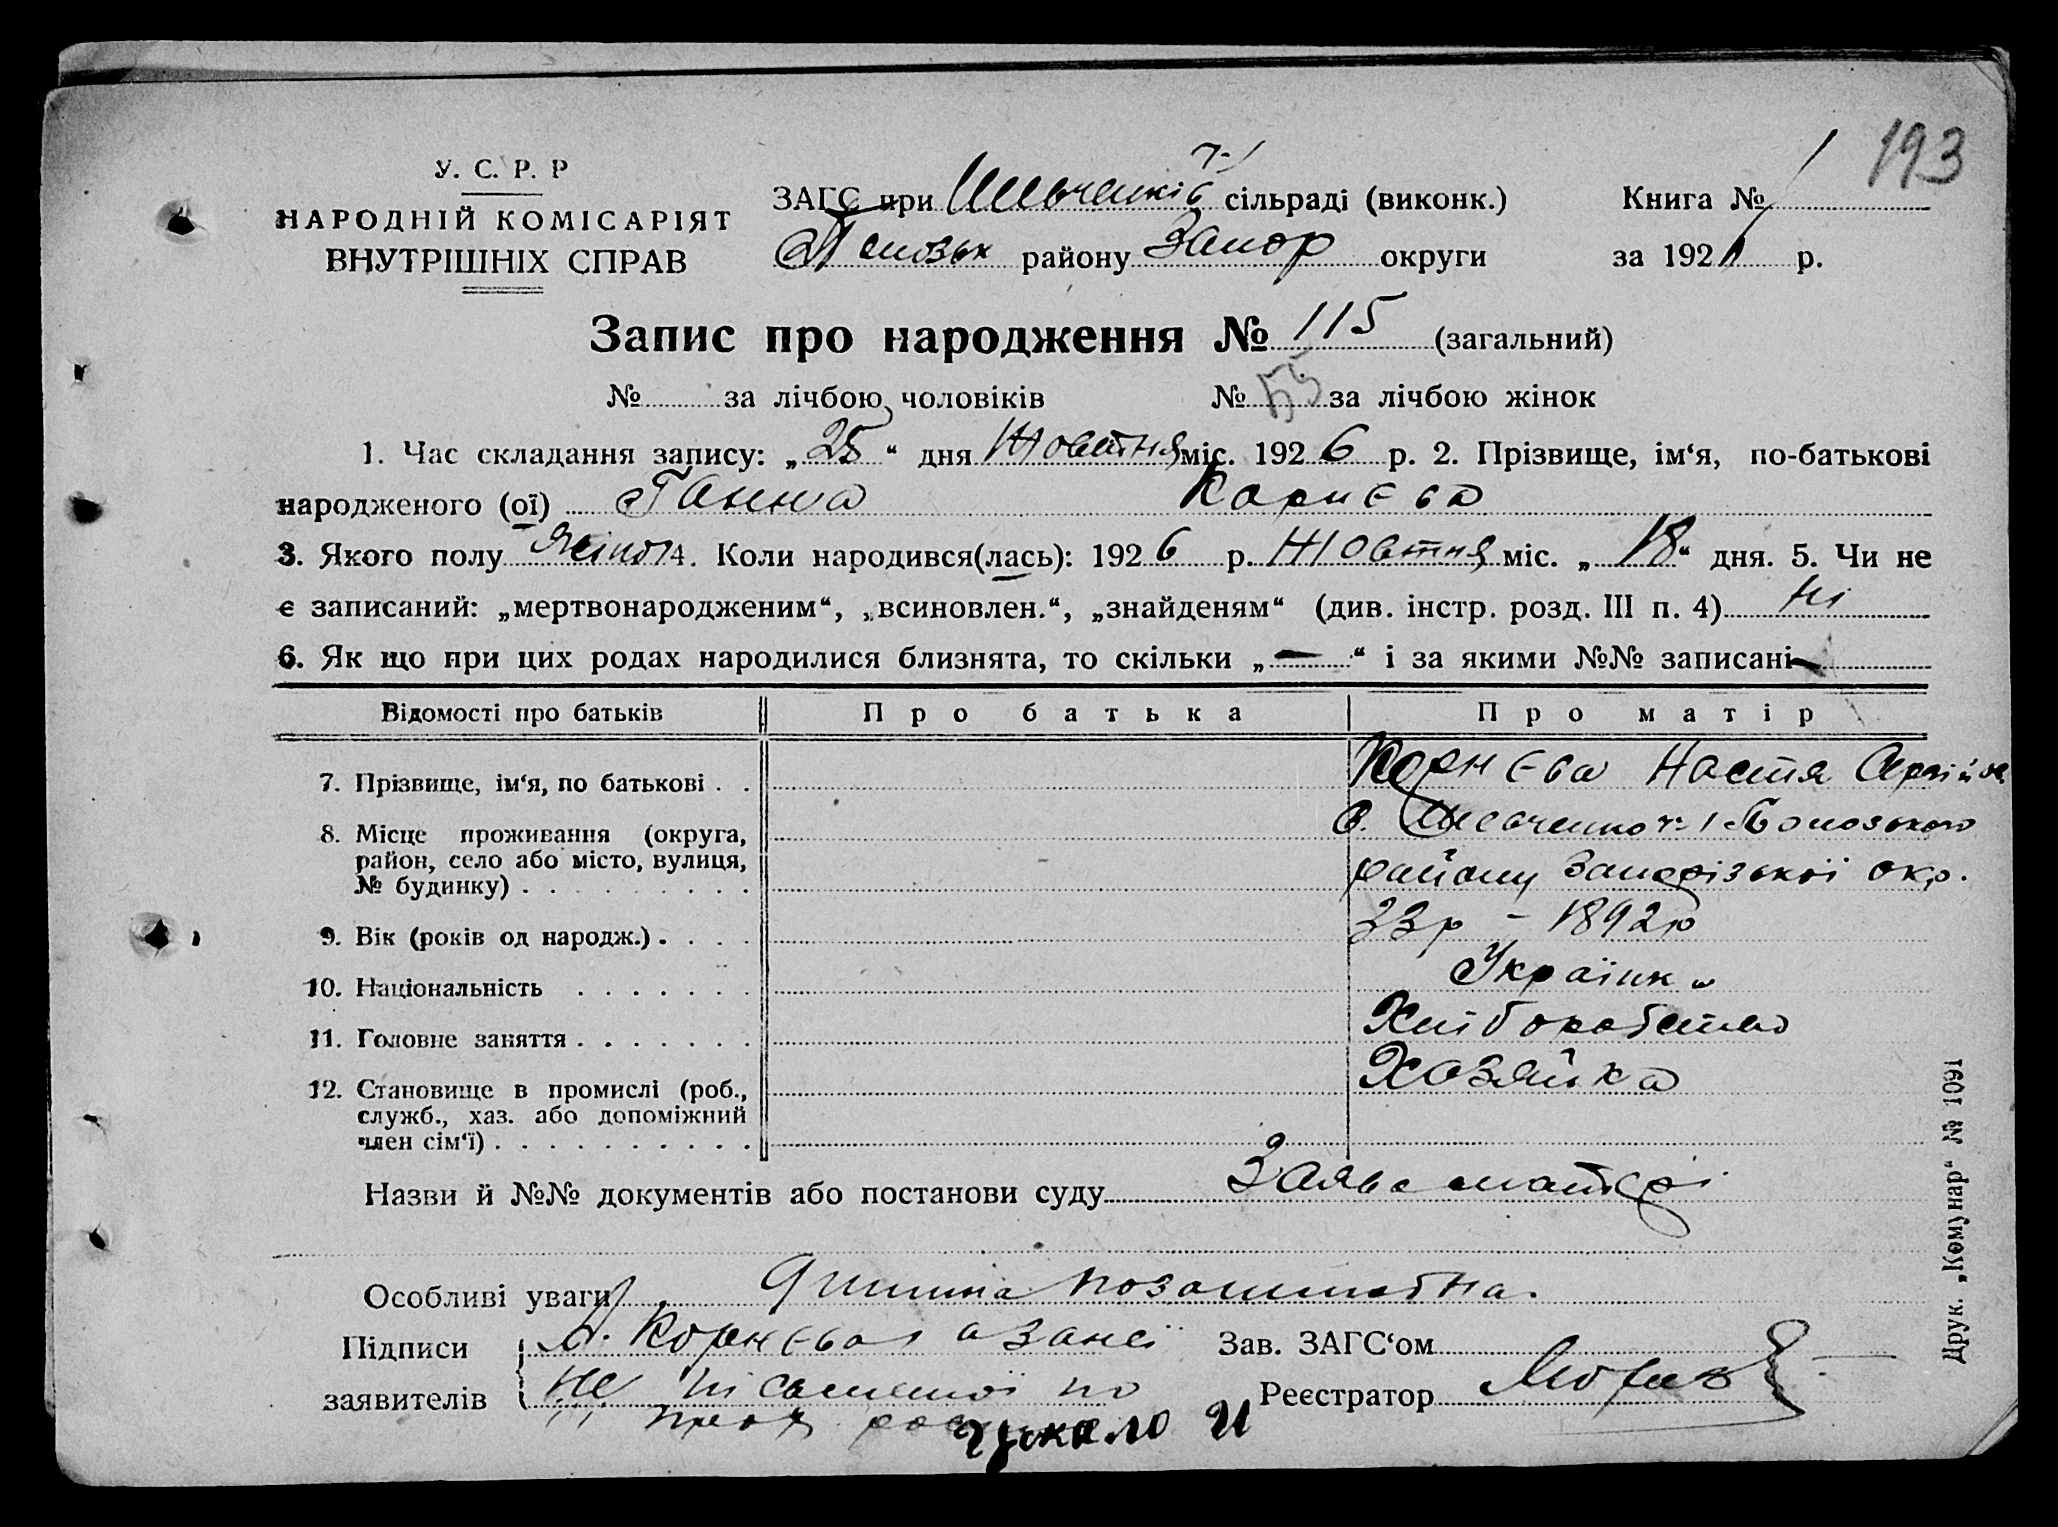 193
У. С. Р. Р
НАРОДНІЙ КОМІСАРІЯТ
ВНУТРІШНІХ СПРАВ
ЗАГС при Шевченків т-1 сільраді (виконк.) Книга № 1
району Запор округи за 192 р.
Запис про народження № 115 (загальний)
№ за лічбою чоловіків № 55 за лічбою жінок
1. Час складання запису: „25“ дня Жовтня міс. 1926 р. 2. Прізвище, ім‘я, по-батькові
народженого (ої) Ганна Корнєва
3. Якого полу жіноч 4. Коли народився(лась): 1926 р. Жовтня міс. „18“ дня. 5. Чи не
є записаний: „мертвонародженим“, „всиновлен.“, „знайденям“ (див. інстр. розд. III п. 4) Ні
6. Як що при цих родах народилися близнята, то скільки „—“ і за якими №№ записані —
Відомості про батьків Про батька Про матір
7. Прізвище, ім‘я, по батькові . . Корнєва Настя
8. Місце проживання (округа, с. Шевченко т-1
район, село або місто, вулиця,
№ будинку) . . . . . . . . . району Запорізької окр.
9. Вік (років од народж.) . . . . 33р – 1892р
10. Національність . . . . . . . Українка
11. Головне заняття . . . . . . . Хліборобство
12. Становище в промислі (роб., Хозяйка
служб., хаз. або допоміжний
член сім‘ї) . . . . . . . . . .
Назви й №№ документів або постанови суду Заява матері
Особливі уваги Дитина позашлюбна.
Підписи А. Корнєва а за неї Зав. ЗАГС‘ом
заявителів не письменої по Реєстратор
Друк. „Комунар“ № 1091